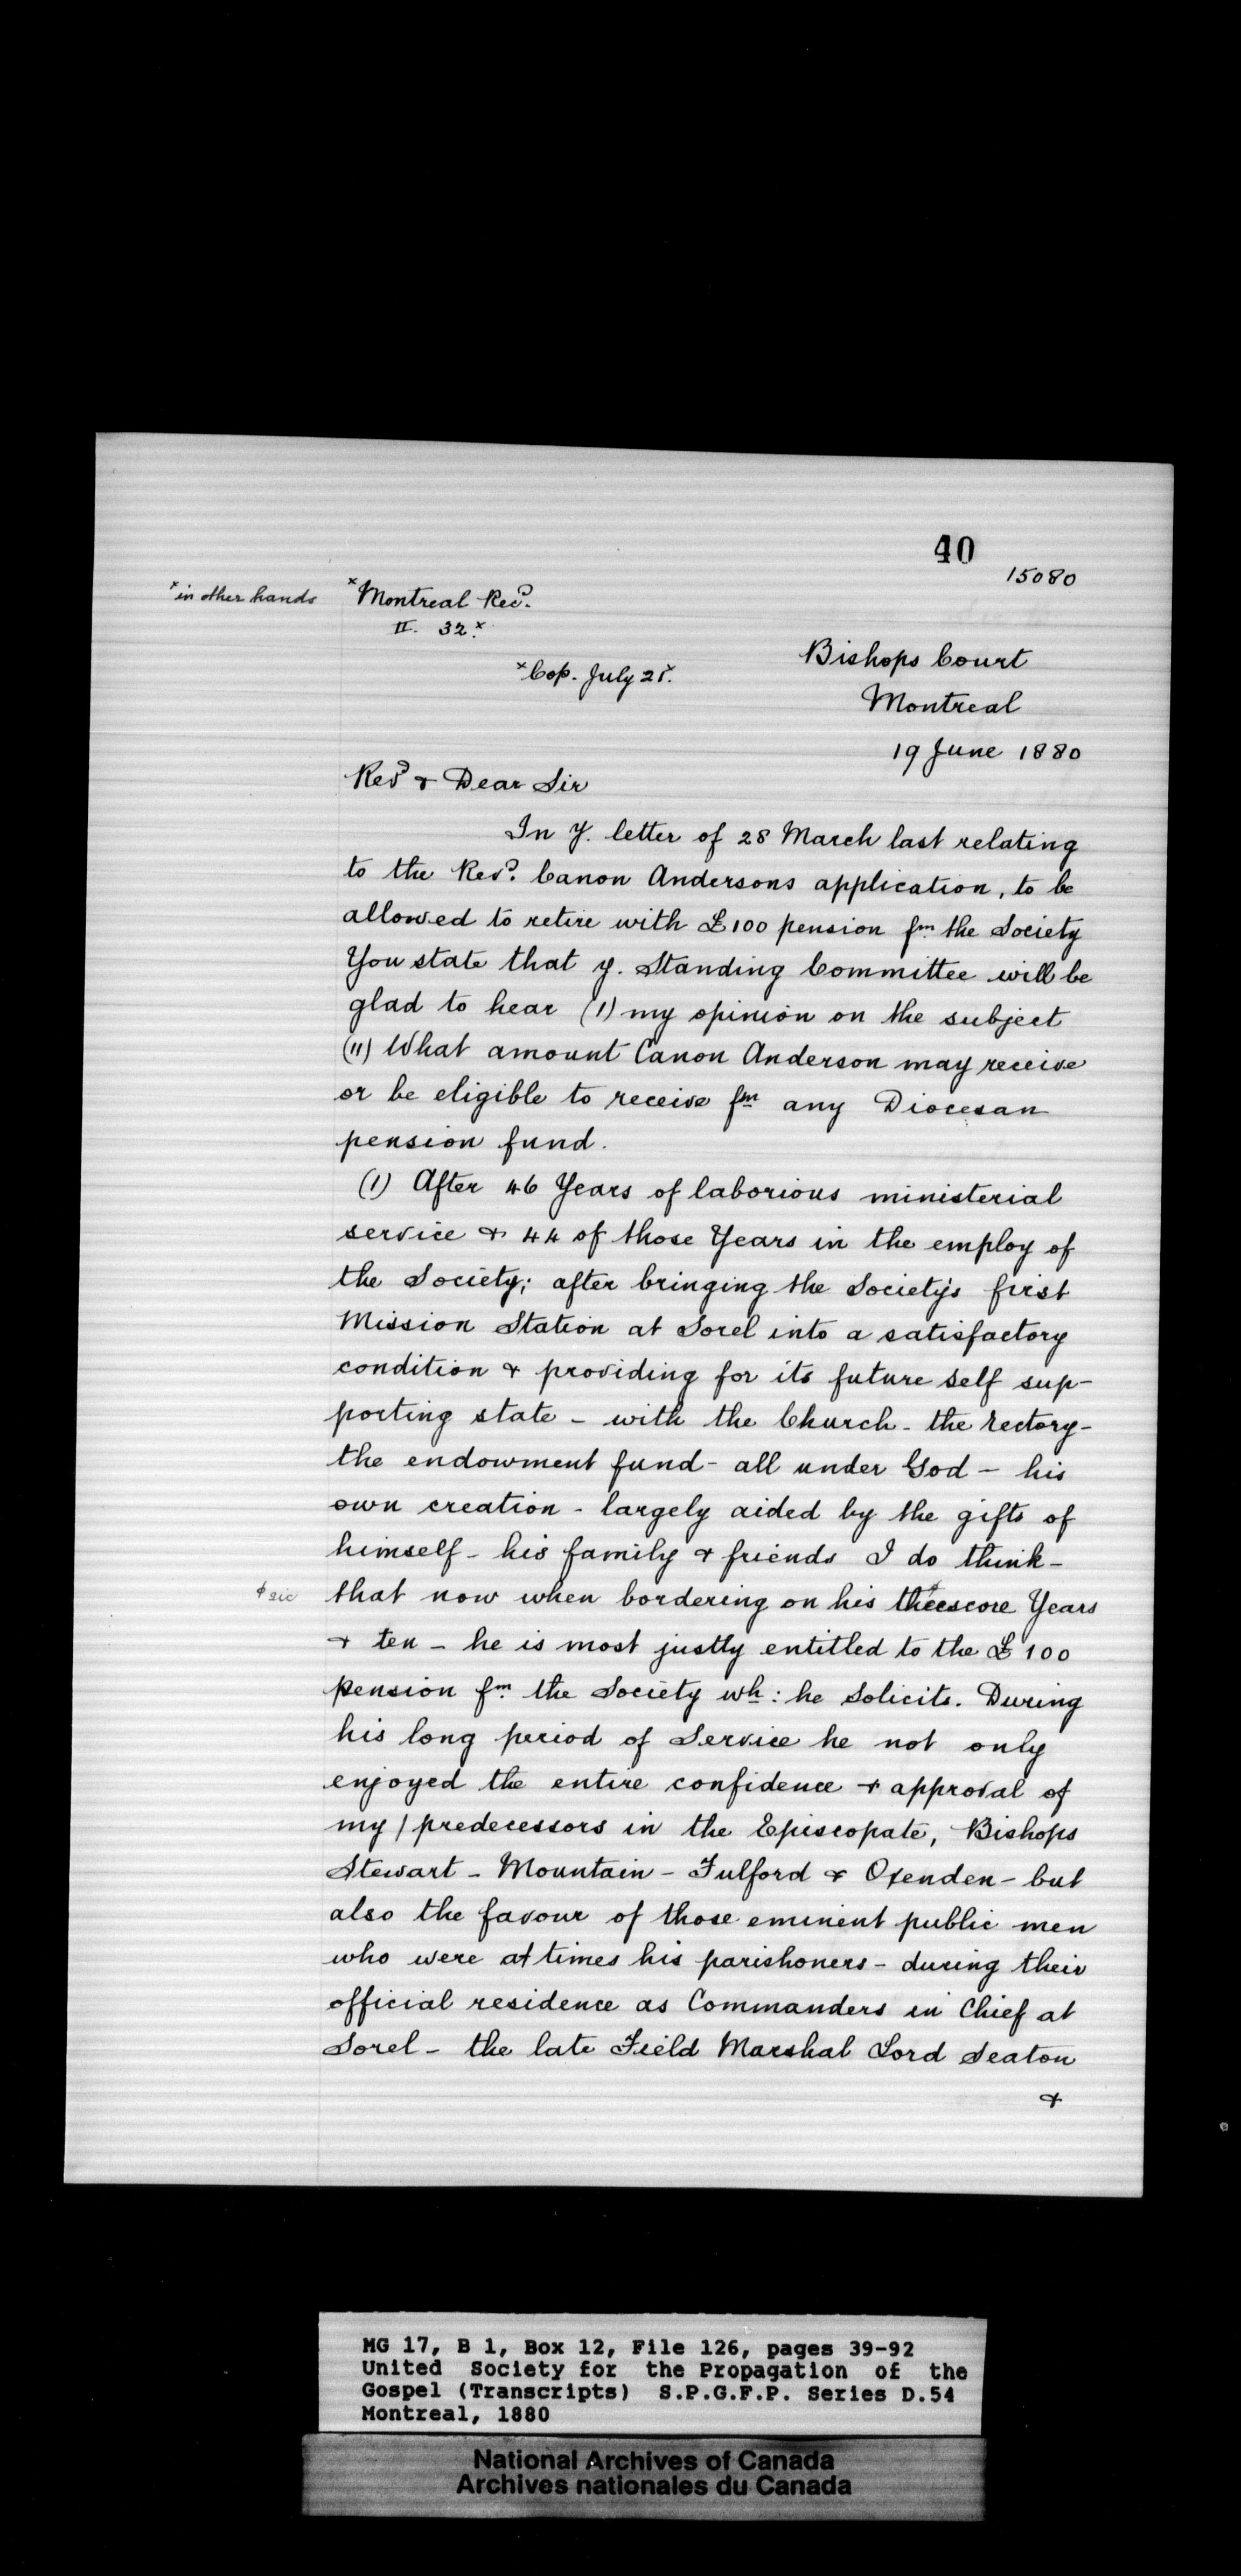 40
15080
x in other hands
x Montreal Recd.
II. 32.x
x Cop. July 21.x
Bishops Court
Montreal
19 June 1880
Revd & Dear Sir
In y. letter of 28 March last relating
to the Revd. Canon Andersons application, to be
allowed to retire with £100 pension fm. the Society
You state that y. Standing Committee will be
glad to hear (1) my opinion on the subject
(11) What amount Canon Anderson may receive
or be eligible to receive fm any Diocesan
pension fund.
(1) After 46 Years of laborious ministerial
service & 44 of those Years in the employ of
the Society; after bringing the Society's first
Mission Station at Sorel into a satisfactory
condition & providing for its future self sup-
porting state - with the Church - the rectory -
the endowment fund - all under God - his
own creation - largely aided by the gifts of
himself - his family & friends I do think -
ϕ sic
that now when bordering on his theescore Years
& ten - he is most justly entitled to the £100
pension fm. the Society wh: he solicits. During
his long period of Service he not only
enjoyed the entire confidence & approval of
my / predecessors in the Episcopate, Bishops
Stewart - Mountain - Fulford & Oxenden - but
also the favour of those eminent public men
who were at times his parishoners - during their
official residence as Commanders in Chief at
Sorel - the late Field Marshal Lord Seaton
&
MG 17, B 1, Box 12, File 126, pages 39-92
United Society for the Propagation of the
Gospel (Transcripts) S.P.G.F.P. Series D.54
Montreal, 1880
National Archives of Canada
Archives nationales du Canada